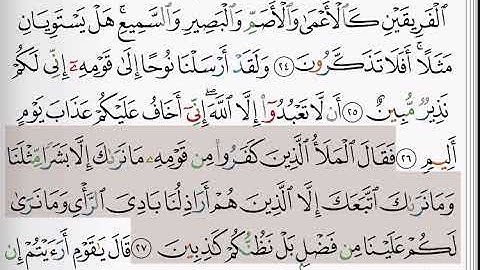 ٱلْفَرِيقَيْنِ كَٱلْأَعْمَىٰ وَٱلْأَصَمِّ وَٱلْبَصِيرِ وَٱلسَّمِيعِ ۚ هَلْ يَسْتَوِيَانِ
مَثَلًا ۚ أَفَلَا تَذَكَّرُونَ ٢٤ وَلَقَدْ أَرْسَلْنَا نُوحًا إِلَىٰ قَوْمِهِۦٓ إِنِّى لَكُمْ
نَذِيرٌ مُّبِينٌ ٢٥ أَن لَّا تَعْبُدُوٓا۟ إِلَّا ٱللَّهَ ۖ إِنِّىٓ أَخَافُ عَلَيْكُمْ عَذَابَ يَوْمٍ
أَلِيمٍ ٢٦ فَقَالَ ٱلْمَلَأُ ٱلَّذِينَ كَفَرُوا۟ مِن قَوْمِهِۦ مَا نَرَىٰكَ إِلَّا بَشَرًا مِّثْلَنَا
وَمَا نَرَىٰكَ ٱتَّبَعَكَ إِلَّا ٱلَّذِينَ هُمْ أَرَاذِلُنَا بَادِىَ ٱلرَّأْىِ وَمَا نَرَىٰ
لَكُمْ عَلَيْنَا مِن فَضْلٍۭ بَلْ نَظُنُّكُمْ كَٰذِبِينَ ٢٧ قَالَ يَٰقَوْمِ أَرَءَيْتُمْ إِن